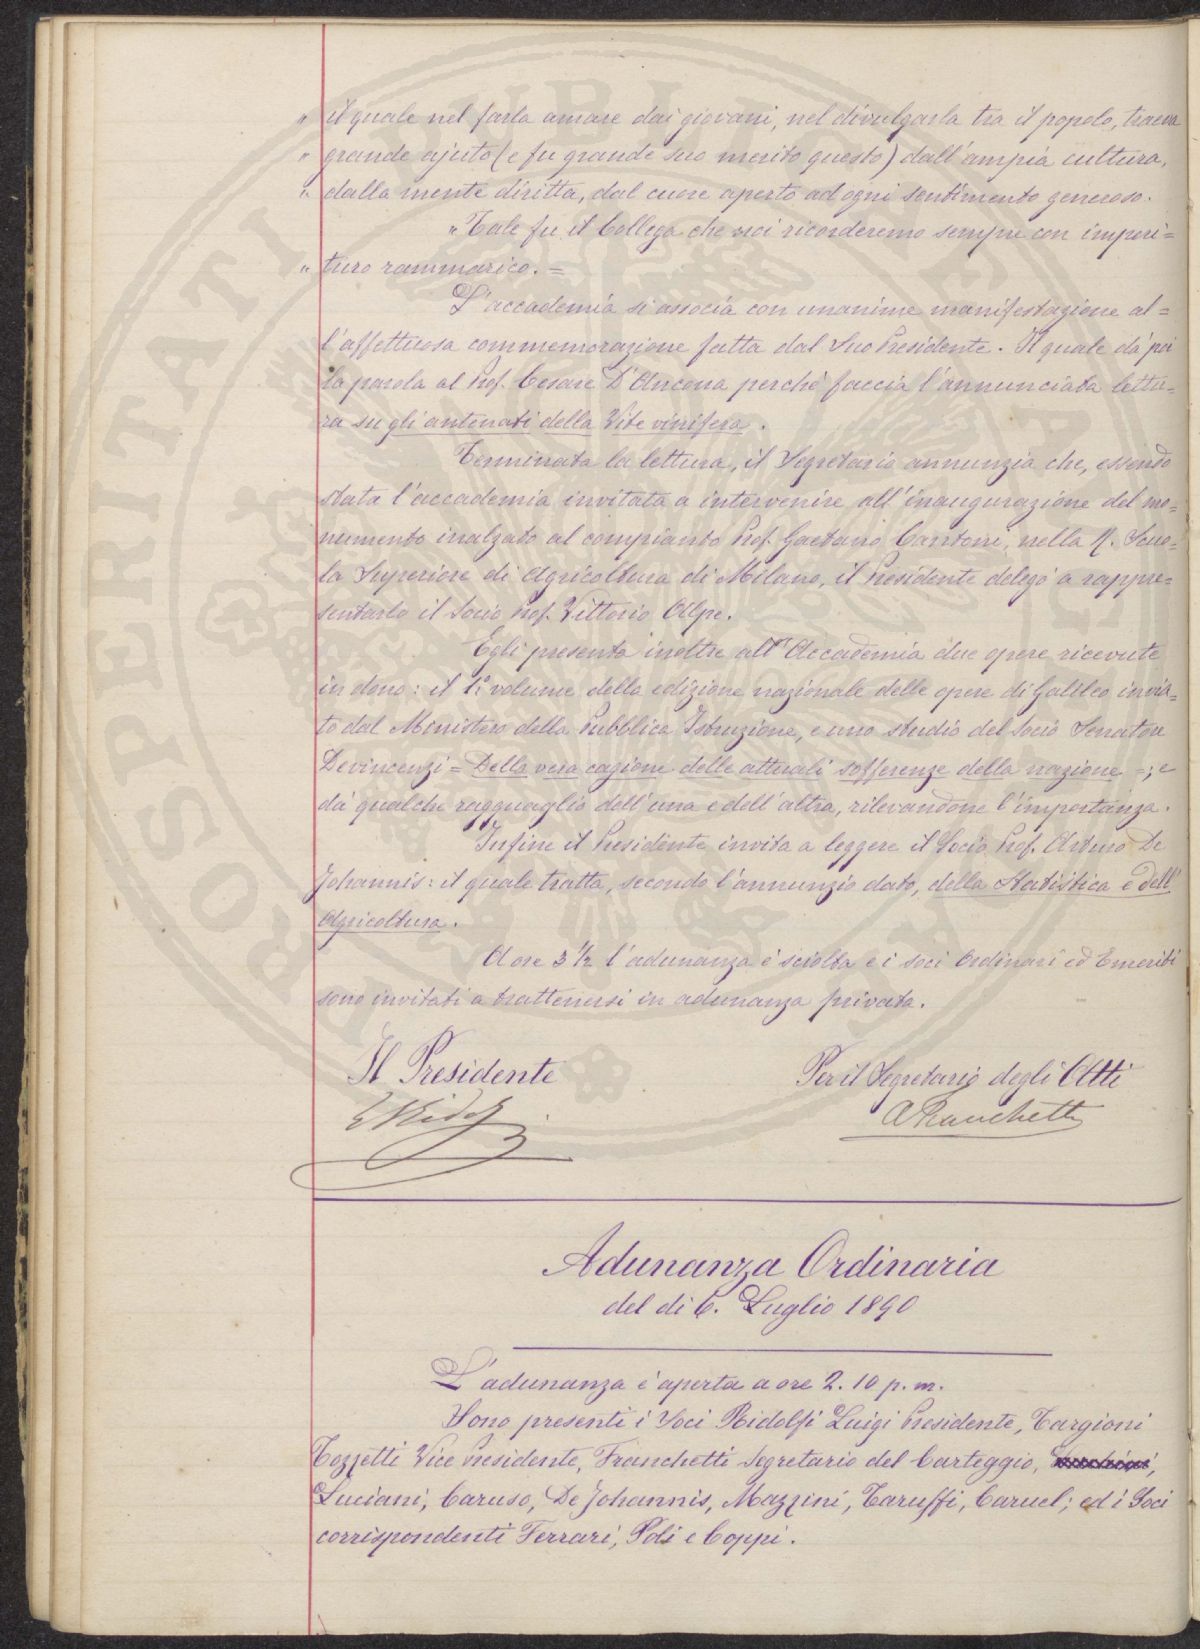 " il quale nel farla amare dai giovani, nel divulgarla tra il popolo, traeva
" grande ajuto (e fu grande suo merito questo) dall'ampia cultura,
" dalla mente diritta, dal cuore aperto ad ogni sentimento generoso.
" Tale fu il Collega che noi ricorderemo sempre con imperi=
" turo rammarico. =
L'accademia si associa con unanime manifestazione al=
l'affettuosa commemorazione fatta dal Suo Presidente. Il quale dà poi
la parola al Prof. Cesare D'Ancona perchè faccia l'annunciata lettu=
ra su gli antenati della Vite vinifera.
Terminata la lettura, il Segretario annunzia che, essendo
stata l'accademia invitata a intervenire all'inaugurazione del mo=
numento inalzato al compianto Prof. Gaetano Cantoni, nella R. Scuo=
la Superiore di Agricoltura di Milano, il Presidente delegò a rappre=
sentarla il Socio Prof. Vittorio Alpe.
Egli presenta inoltre all'Accademia due opere ricevute
in dono: il 1.° volume della edizione nazionale delle opere di Galileo invia=
to dal Ministero della Pubblica Istruzione, e uno studio del Socio Senatore
Devincenzi = Della vera cagione delle attuali sofferenze della nazione =; e
dà qualche ragguaglio dell'una e dell'altra, rilevandone l'importanza.
Infine il Presidente invita a leggere il Socio Prof. Arturo De
Johannis: il quale tratta, secondo l'annunzio dato, della Statistica e dell'
Agricoltura.
A ore 3 1/2 l'adunanza è sciolta e i soci Ordinari ed Emeriti
sono invitati a trattenersi in adunanza privata.
Il Presidente
Per il Segretario degli Atti
L Ridolfi
A Franchetti
Adunanza Ordinaria
del dì 6. Luglio 1890
L'adunanza è aperta a ore 2. 10 p. m.
Sono presenti i Soci Ridolfi Luigi Presidente, Targioni
Tozzetti Vice Presidente, Franchetti Segretario del Carteggio,
Luciani, Caruso, De Johannis, Mazzini, Taruffi, Caruel; ed i Soci
corrispondenti Ferrari, Poli e Coppi.
PROSPERITATI